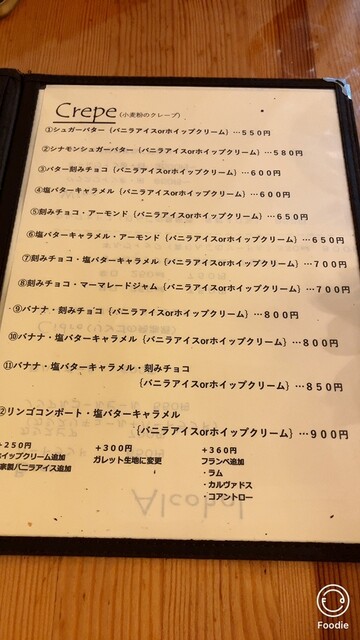 Crepe (小麦粉のクレープ)
①シュガーバター {バニラアイスorホイップクリーム} …550円
②シナモンシュガーバター {バニラアイスorホイップクリーム} …580円
③バター刻みチョコ {バニラアイスorホイップクリーム} …600円
④塩バターキャラメル {バニラアイスorホイップクリーム} …600円
⑤刻みチョコ・アーモンド {バニラアイスorホイップクリーム} …650円
⑥塩バターキャラメル・アーモンド {バニラアイスorホイップクリーム} …650円
⑦刻みチョコ・塩バターキャラメル {バニラアイスorホイップクリーム} …700円
⑧刻みチョコ・マーマレードジャム {バニラアイスorホイップクリーム} …700円
⑨バナナ・刻みチョコ {バニラアイスorホイップクリーム} …800円
⑩バナナ・塩バターキャラメル {バニラアイスorホイップクリーム} …800円
⑪バナナ・塩バターキャラメル・刻みチョコ
{バニラアイスorホイップクリーム} …850円
②リンゴコンポート・塩バターキャラメル
{バニラアイスorホイップクリーム} …900円
+250円
イップクリーム追加
家製バニラアイス追加
+300円
ガレット生地に変更
+360円
フランベ追加
・ラム
・カルヴァドス
・コアントロー
Alcohol
Foodie